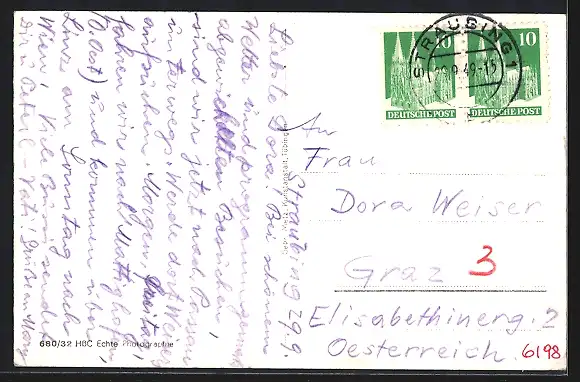 STRAUBING 1
9.49-15
10
10
DEUTSCHE POST
DEUTSCHE POST
Straubing 29.9.
Liebste Dora! Bei schönem
Wetter und programmgemäss
abgewickelten Besuchen,
sind wir jetzt nach Passau
unterwegs. Werde dort
aufsuchen. Morgen,
fahren wir nach Mattighofen,
O.Öst) und kommen über
Linz am Sonntag nach
Wien! Viele Bussi sendet
An
Frau
Dora Weiser
Graz 3
Elisabethinerg. 2
Oesterreich.
6198
680/32 HBC Echte Photographie